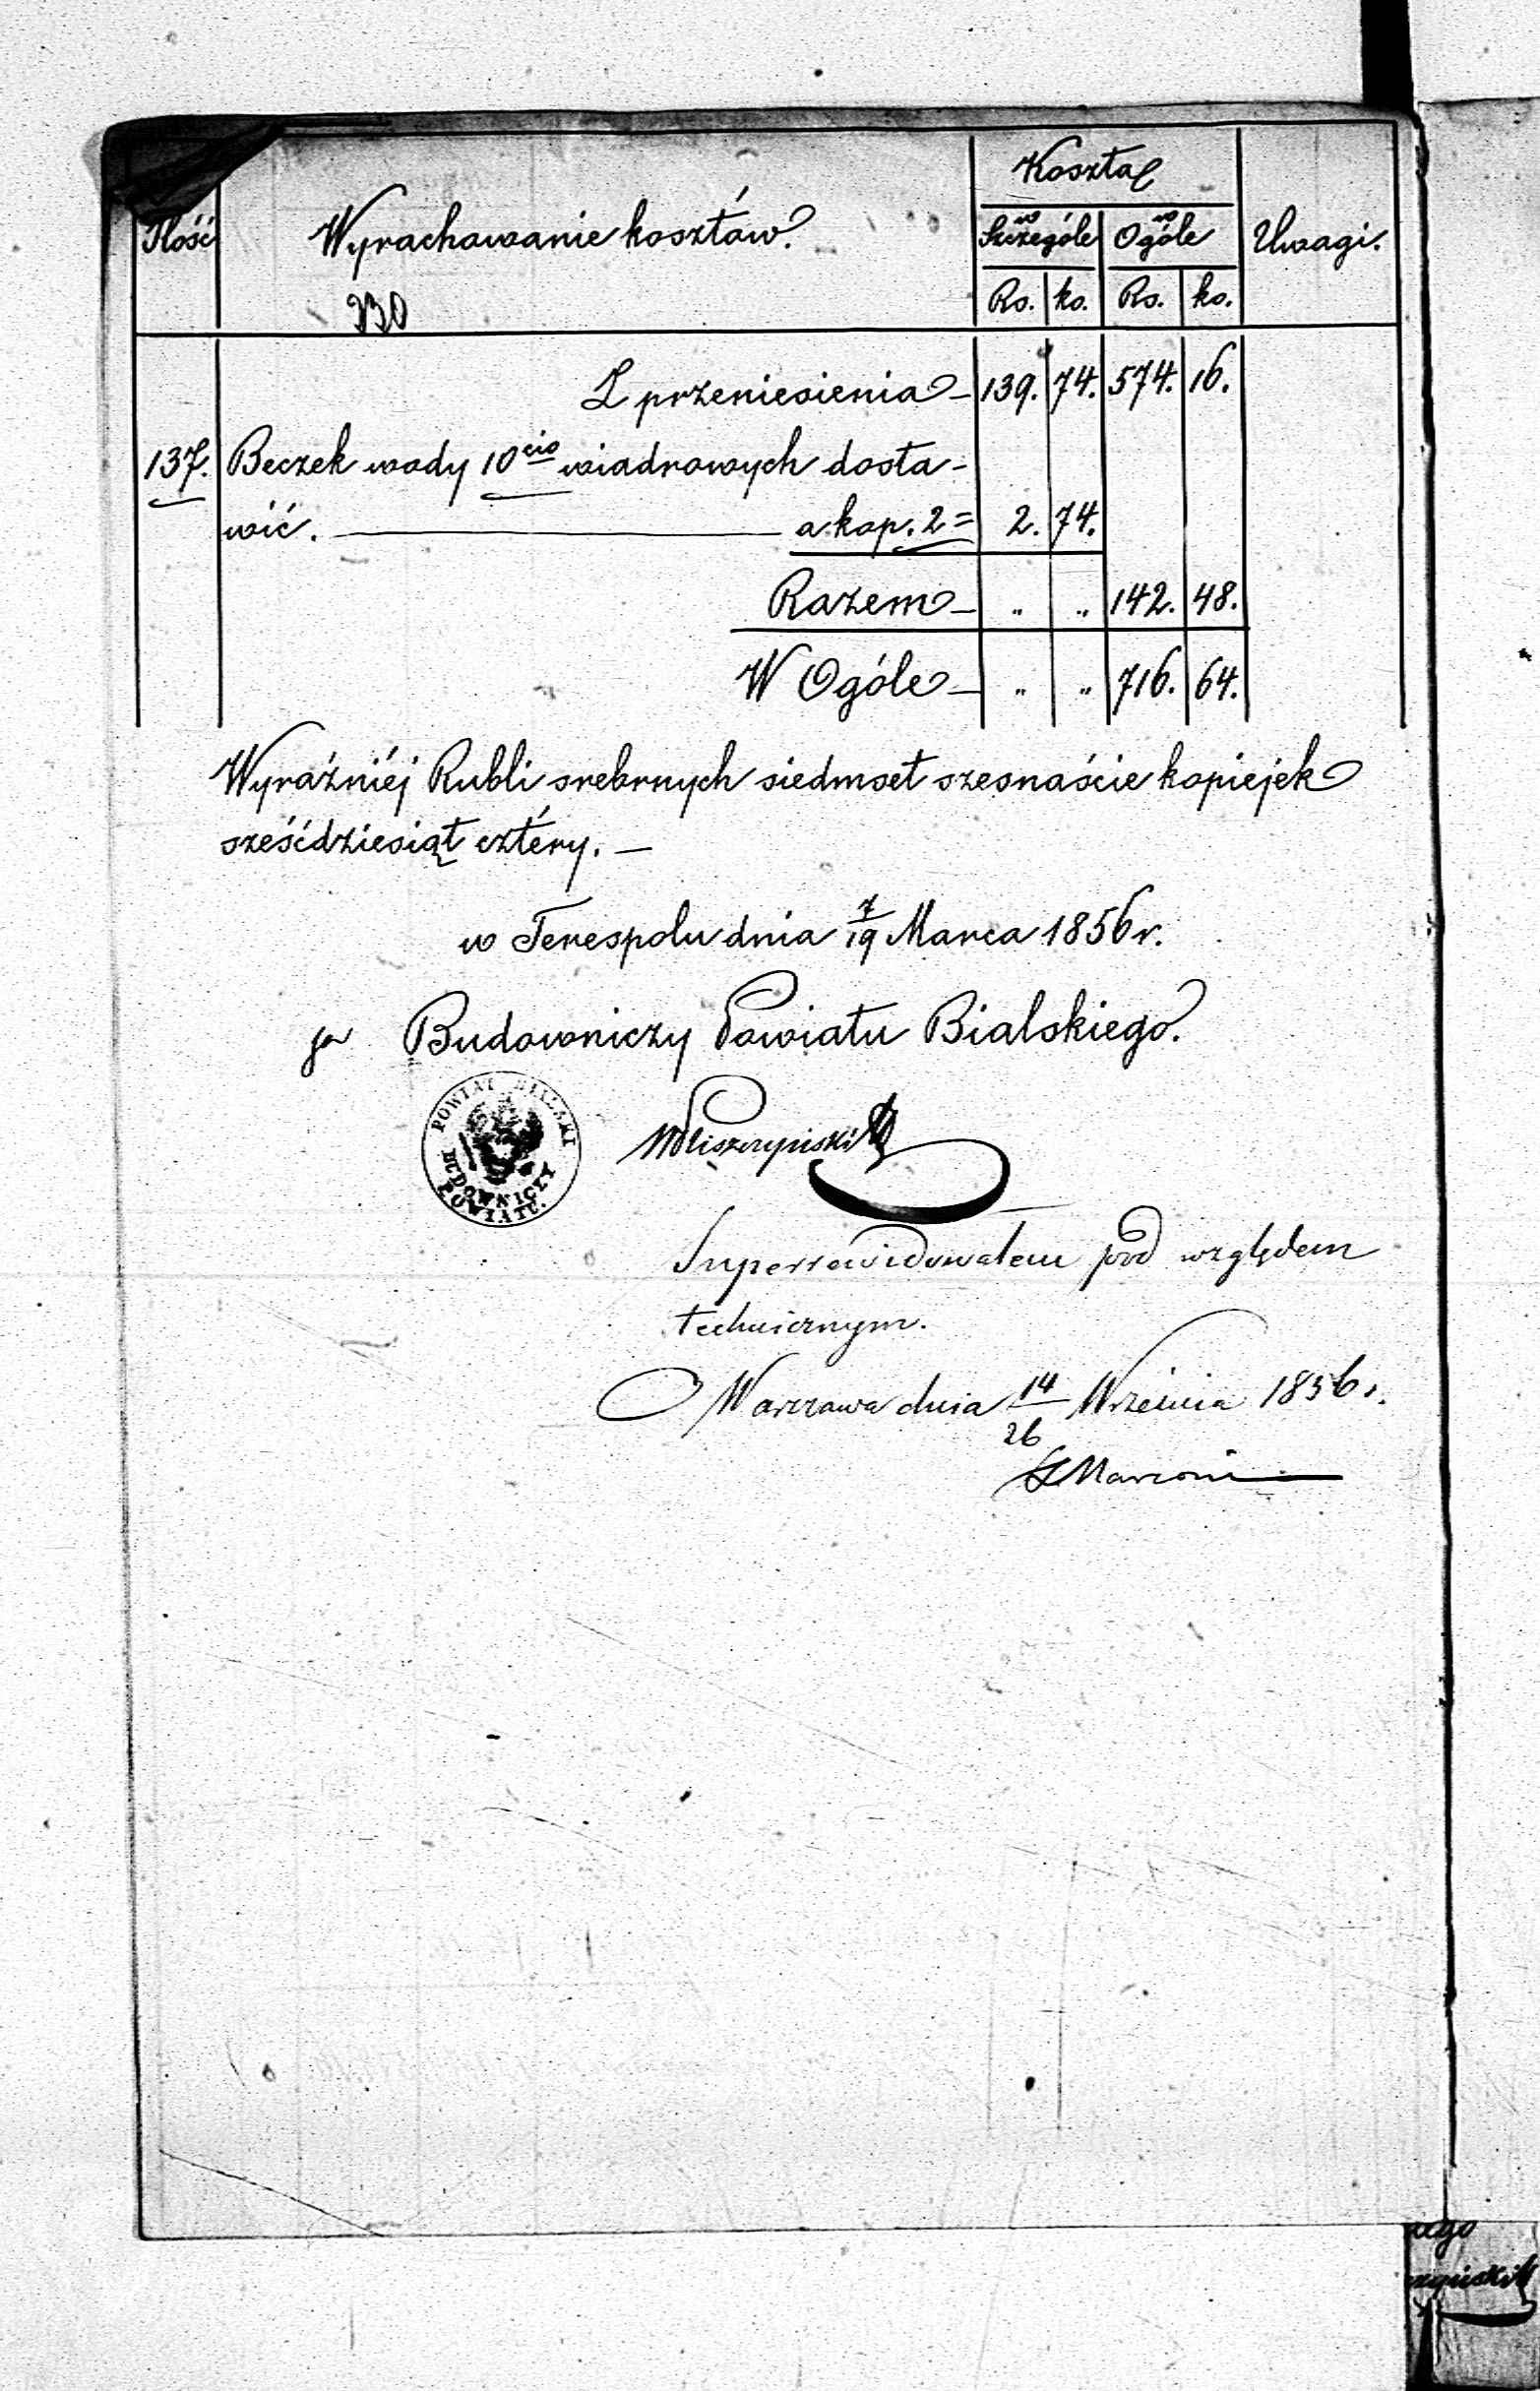 Kosztą
Ilość Wyrachowanie kosztów. w Szczególe w Ogóle Uwagi.
330 Rs. ko. Rs. ko.
Z przeniesienia – 139. 74. 574. 16.
137. Beczek wody 10cio wiadrowych dosta-
wić. a kop. 2 = 2. 74.
Razem – " " 142. 48.
W Ogóle – " " 716. 64.
Wyraźniéj Rubli srebrnych siedmset szesnaście kopiejek
sześćdziesiąt cztéry. –
w Terespolu dnia 7/19 Marca 1856 r.
Budowniczy Powiatu Bialskiego.
POWIAT BIALSKI
BUDOWNICZY
POWIATU.
Superrewidowałem pod względem
technicznym.
Warszawa dnia 14/26 Września 1856 r.
Marconi